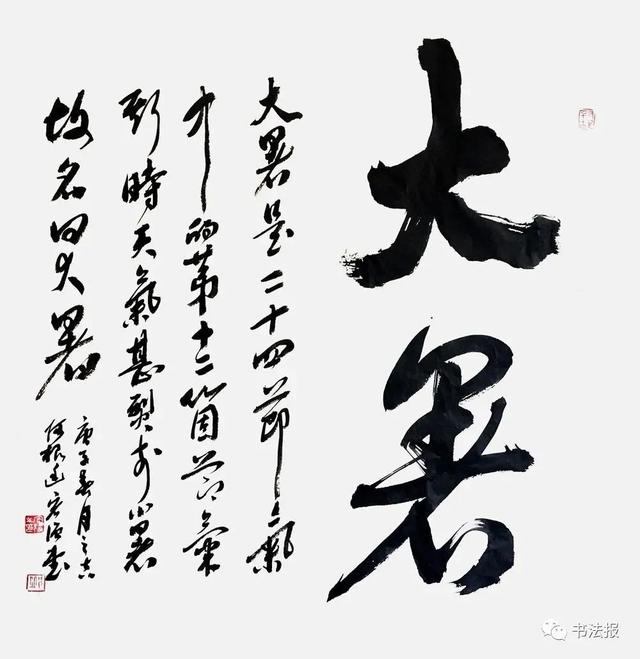 大暑
大暑是二十四節氣
中的第十二個節氣
斯時天氣甚烈於小暑
故名曰大暑
庚子暑月之
书法报